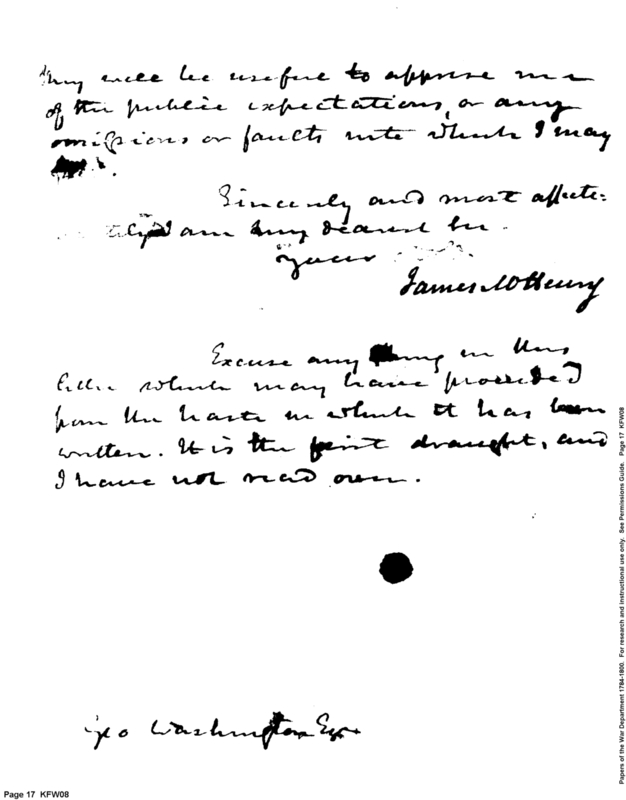 They will be useful to apprise me
of the public expectations, or any
omissions or faults into which I may
Sincerely and most affecte=
I am my dearest Sir
Your
James McHenry
Excuse any thing in this
letter which may have proceeded
from the haste in which it has been
written. It is the first draught, and
I have not read over.
Geo Washington Esqr
Page 17 KFW08
Papers of the War Department 1784-1800. For research and instructional use only. See Permissions Guide. Page 17 KFW08